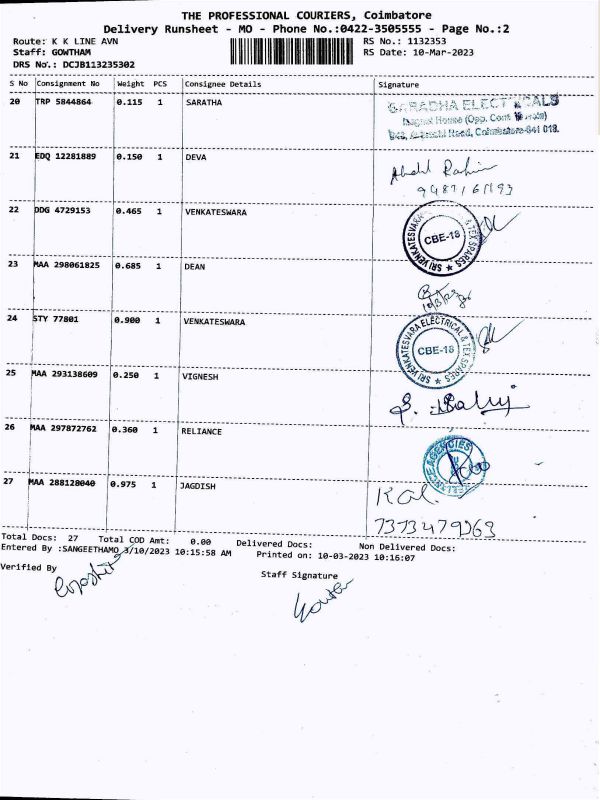 THE PROFESSIONAL COURIERS, Coimbatore
Delivery Runsheet - MO - Phone No.:0422-3505555 - Page No.:2
Route: K K LINE AVN RS No.: 1132353
Staff: GOWTHAM RS Date: 10-Mar-2023
DRS No.: DCJB113235302
S No Consignment No Weight PCS Consignee Details Signature
20 TRP 5844864 0.115 1 SARATHA
SARADHA ELECTRICALS
Magnet House (Opp. Cont
Road, Coimbatore-641 018.
21 EDQ 12281889 0.150 1 DEVA
Abdul Rahim
22 DDG 4729153 0.465 1 VENKATESWARA
SRI VENKATESVARA & TEX SPARES ★
CBE-18
23 MAA 298061825 0.685 1 DEAN
10/3/23
24 STY 77801 0.900 1 VENKATESWARA
SRI VENKATESVARA ELECTRICAL & TEX SPARES ★
CBE-18
25 MAA 293138609 0.250 1 VIGNESH
26 MAA 297872762 0.360 1 RELIANCE
AGENCIES
27 MAA 288128040 0.975 1 JAGDISH
Total Docs: 27 Total COD Amt: 0.00 Delivered Docs: Non Delivered Docs:
Entered By :SANGEETHAMO 3/10/2023 10:15:58 AM Printed on: 10-03-2023 10:16:07
Verified By
Staff Signature